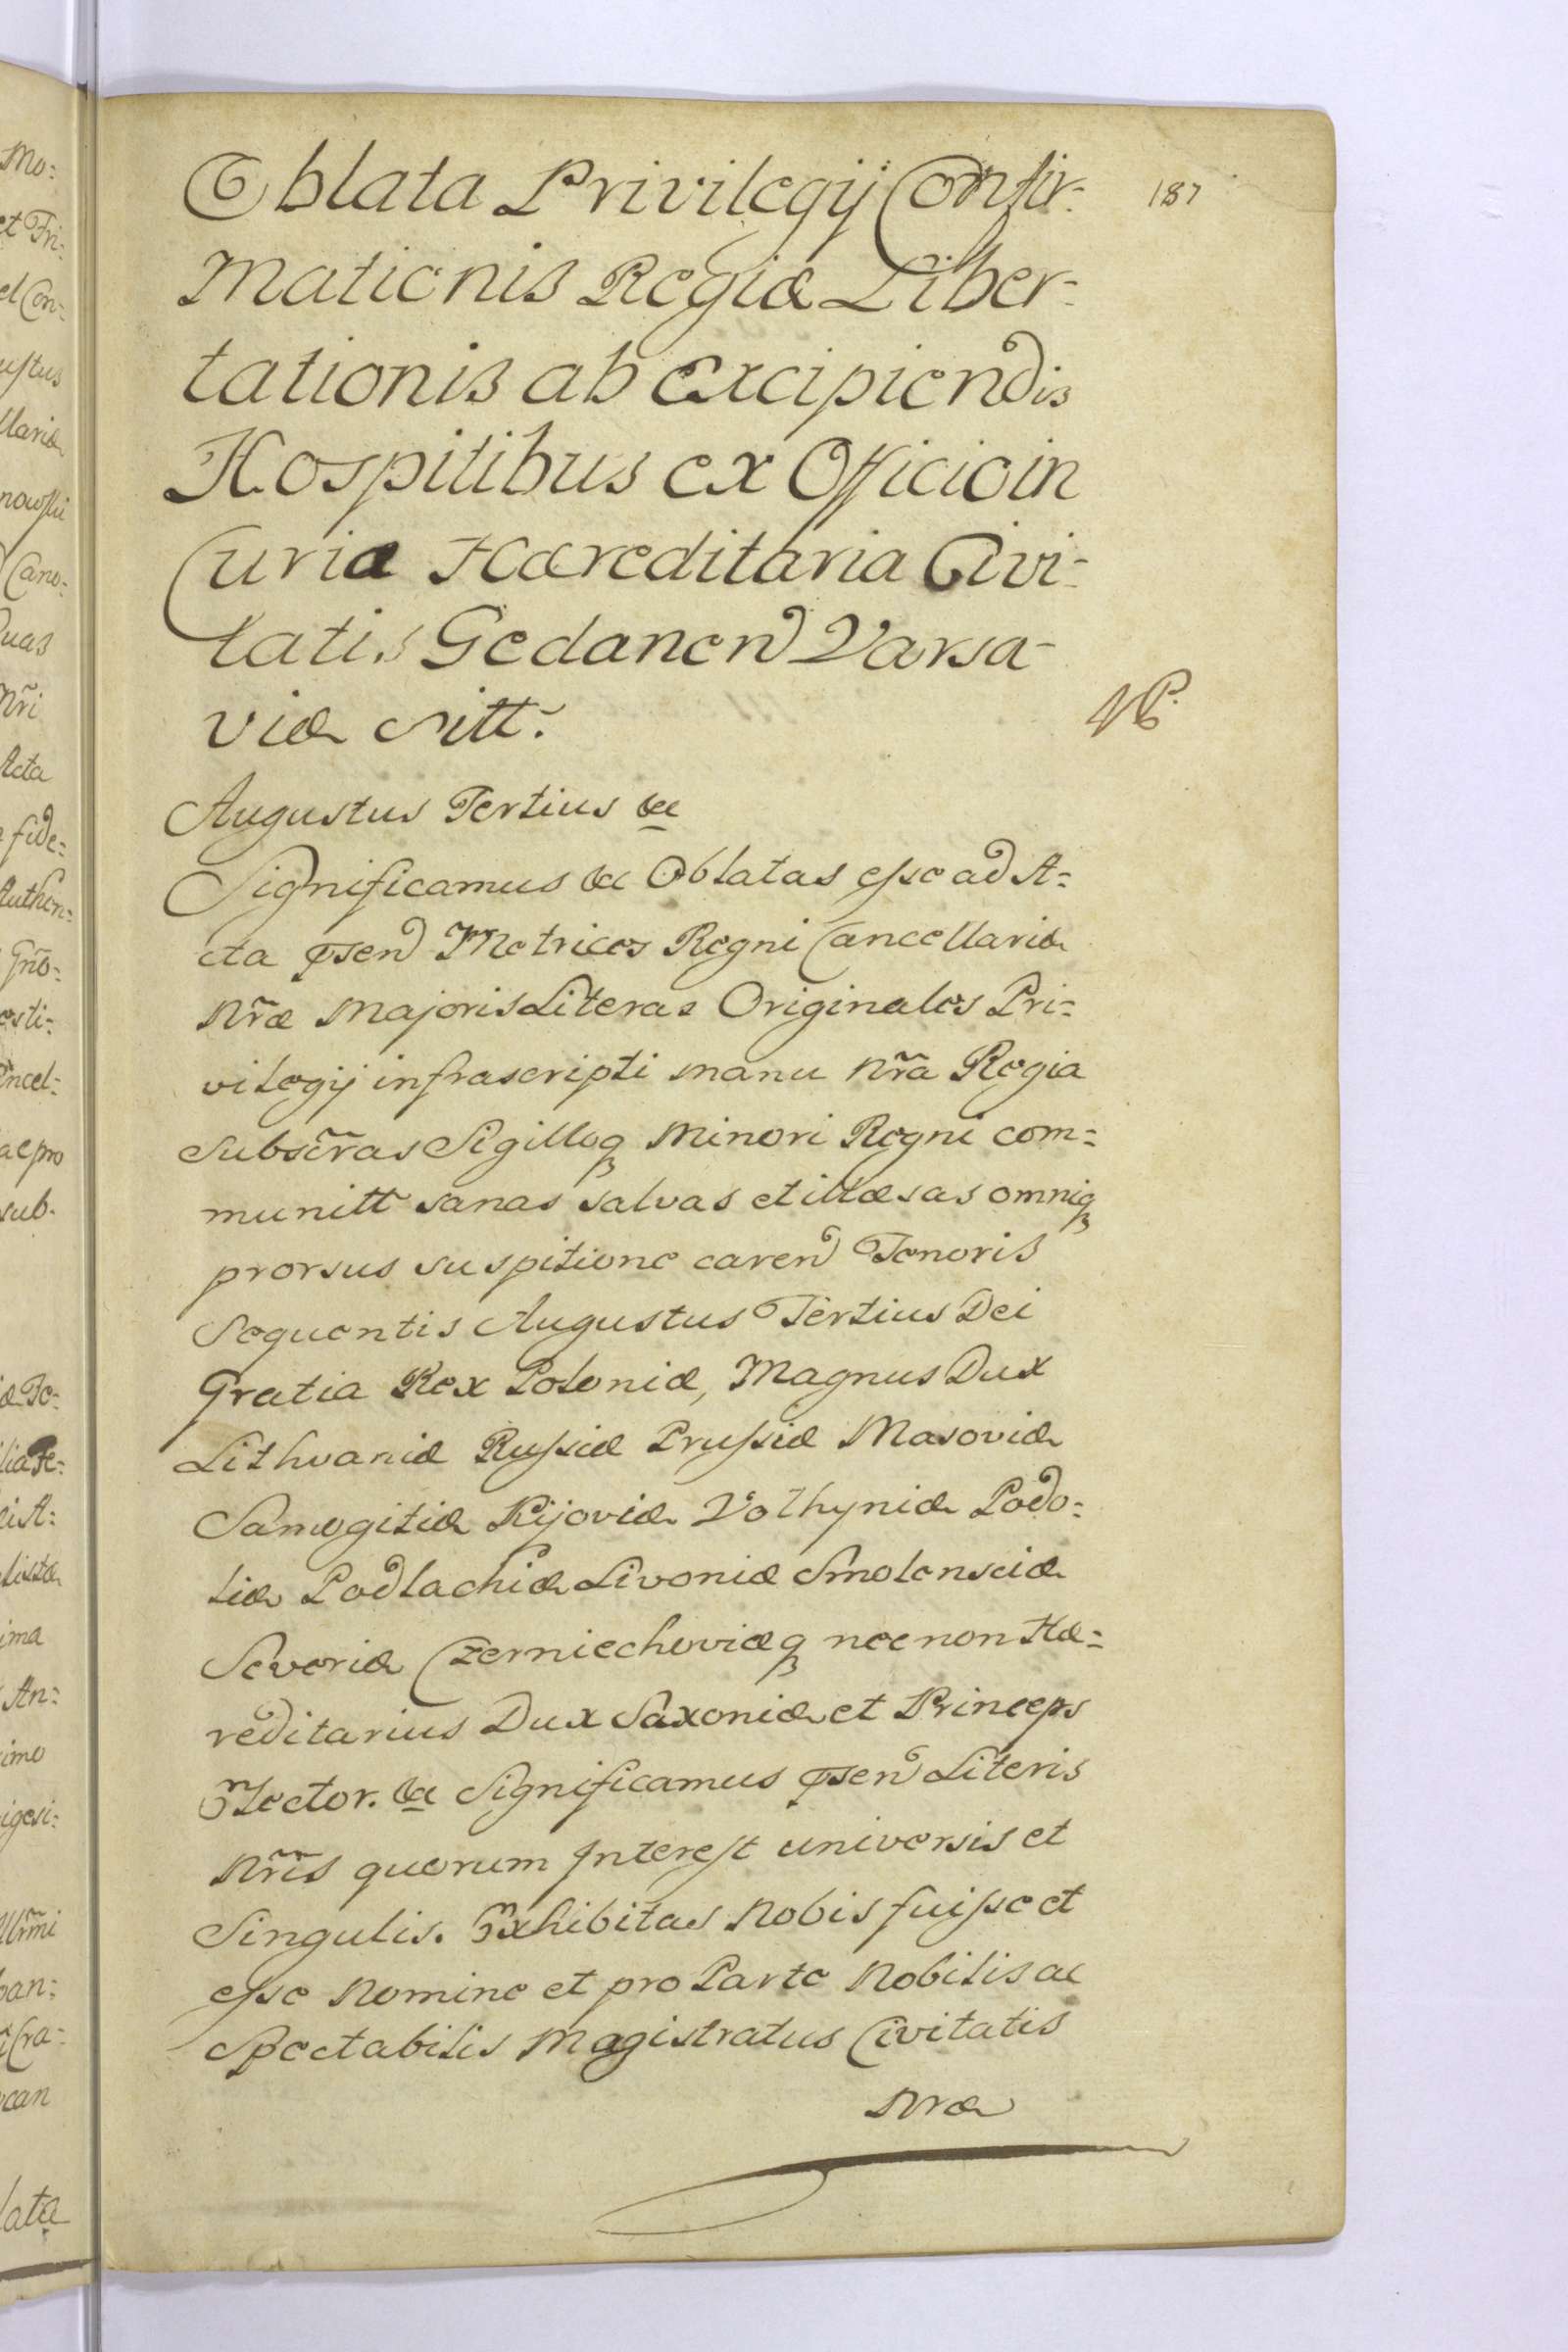 Oblata Privilegij Confir-
mationis Regiæ Liber-
tationis ab Excipiendis
Hospitibus ex Officio in
Curia Hæreditaria Civi-
tatis Gedanen Varsa-
viæ sitt.
187
Augustus Tertius &c
Significamus &c Oblatas esse ad A=
cta pñsen Metrices Regni Cancellariæ
Nr̃æ Majoris Literas Originales Pri=
vilegij infrascripti manu Nr̃a Regia
Subscr̃as Sigilloq Minori Regni com=
munitt sanas salvas et illæsas omniq
prorsus suspitione caren Tenoris
Sequentis Augustus Tertius Dei
Gratia Rex Poloniæ, Magnus Dux
Lithvaniæ Russiæ Prussiæ Masoviæ
Samogitiæ Kijoviæ Volhyniæ Podo=
liæ Podlachiæ Livoniæ Smolensciæ
Severiæ Czerniechoviæq necnon Hæ=
reditarius Dux Saxoniæ et Princeps
Elector. &c Significamus pñsen Literis
Nr̃is quorum Interest universis et
Singulis. Exhibitas Nobis fuisse et
esse Nomine et pro Parte Nobilis ac
Spectabilis Magistratus Civitatis
Nræ